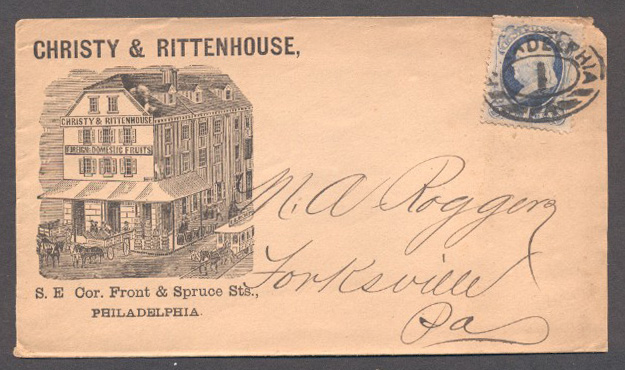 CHRISTY & RITTENHOUSE,
CHRISTY & RITTENHOUSE
FOREIGN & DOMESTIC FRUITS
S. E Cor. Front & Spruce Sts.,
PHILADELPHIA.
ADELPHIA
1
PA
M. A Rogers
Forksville
Pa